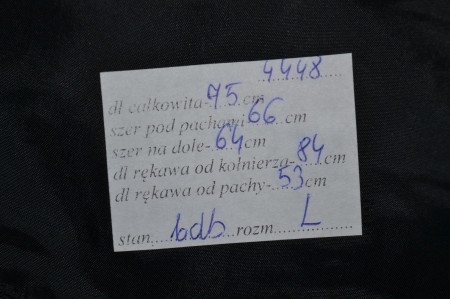 4448
dł całkowita-75cm
szer pod pachami-66cm
szer na dole-64cm
dł rękawa od kołnierza-84cm
dł rękawa od pachy-53cm
stan bdb rozm L